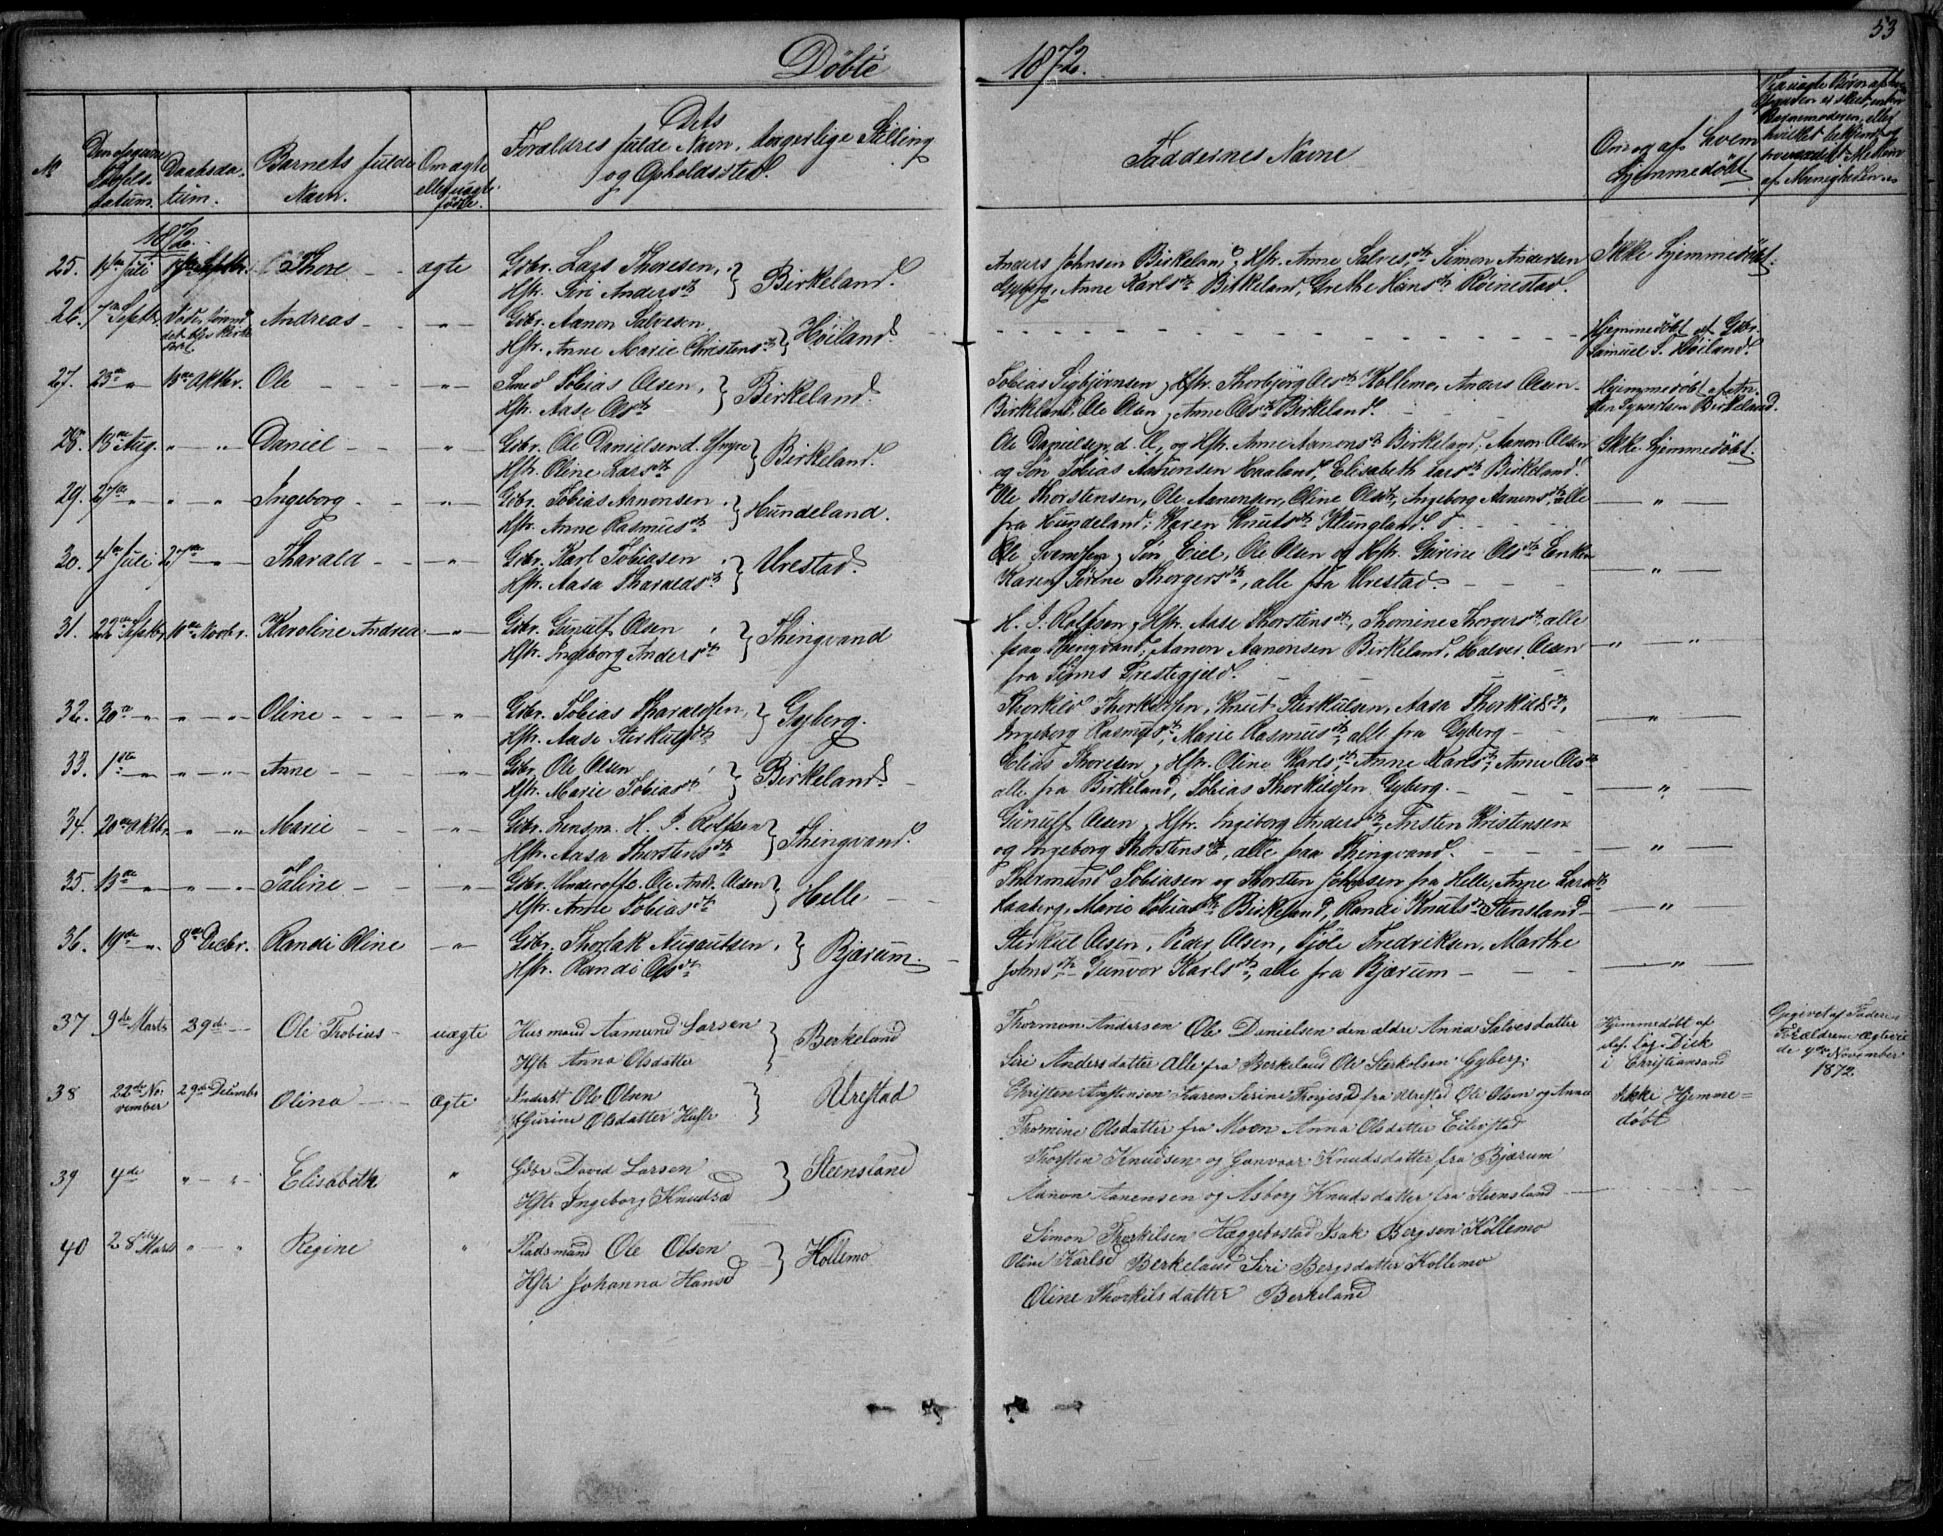 53
Døbte 1872.
No
Den Døbtes Fødselsdatum.
Daabsdatum.
Barnets fulde Navn.
Om ægte eller uægte født.
Dets Forældres fulde Navn, borgerlige Stilling og Opholdssted.
Faddernes Navne
Om og af hvem hjemmedøbt.
1872.
25. 14de Juli Thore - - ægte Gdbr. Lars Thoresen, Hstr. Siri Andersdtr } Birkeland. Anders Johnsen Birkeland, Hstr. Anne Salvesdtr Simon Andersen Ikke hjemmedøbt.
Gyberg, Anne Karlsdtr Birkeland, Grethe Hansdtr Røinestad.
26. 7de Septbr. Andreas - - " - Gdbr. Aanon Salvesen Hstr. Anne Marie Christensdtr } Høiland. Hjemmedøbt af Gdbr.
Samuel S. Høiland.
27. 23de " 13de Oktbr. Ole - - - " - Smed Tobias Olsen, Hstr. Aase Olsdtr } Birkeland. Tobias Sigbjørnsen, Hstr. Thorbjørg Olsdtr Kollemo, Anders Olsen Hjemmedøbt
Birkeland, Ole Olsen, Anne Olsdtr Birkeland. Birkeland.
28. 13de Aug. " - " Daniel - - " Gdbr. Ole Danielsen d. Yngre Hstr. Oline Larsdtr } Birkeland. Ole Danielsen d. Æ, og Hstr. Anne Aanonsdtr Birkeland, Aanon Olsen Ikke hjemmedøbt.
og Søn Tobias Aanonsen Haaland, Elisabeth Larsdtr Birkeland.
29. 27de " " - " Ingeborg - - " Gdbr. Tobias Aanonsen Hstr. Anne Rasmusdtr } Hundeland. Ole Thorstensen, Ole Aanensen, Oline Olsdtr, Ingeborg Aanonsdtr, alle "
fra Hundeland, Karen Knutsdtr Klungland.
30. 4de Juli 27de " Tharald - - " Gdbr. Karl Tobiasen Hstr. Aasa Tharaldsdtr } Urestad. Ole Svendsen, Søn Eiel, Ole Olsen og Hstr. Gurine Olsdtr Enken "
Karen Serine Thorgersdtr, alle fra Urestad.
31. 22de Septbr. 10de Novbr. Karoline Andrea - " - Gdbr. Gunulf Olsen Hstr. Ingeborg Andersdtr } Thingvand H. J. Rolfsen, Hstr. Aase Thorstensdtr, Thomine Thorersdtr, alle " "
fraa Thingvand, Aanon Aanonsen Birkeland, Halver Olsen
fra Præstegjeld.
32. 30te " " - " Oline - - - " Gdbr. Tobias Tharaldsen, Hstr. Aase Sterkulsdtr } Gyberg. Thorkild Thorkildsen, Knut Sterkulsen, Aasa Thorkildsdtr, "
Ingeborg Rasmusdtr, Marie Rasmusdtr, alle fra Gyberg -
33. 1ste " " - " Anne - - - " Gdbr. Ole Olsen Hstr. Marie Tobiasdtr } Birkeland. Elias Thoresen, Hstr. Oline Karlsdtr, Anne Karlsdtr, Anne Olsdtr "
alle fra Birkeland, Tobias Thorkildsen Gyberg.
34. 20de Oktbr. " - " Marie - - " Gdbr. Lensm. H. J. Rolfsen Hstr. Aasa Thorstensdtr } Thingvand. Gunulf Olsen, Hstr. Ingeborg Andersdtr, Ansten Kristensen "
og Ingeborg Thorstensdtr, alle fraa Thingvand.
35. 13de " " - " Taline - - " Gdbr. Underoffs. Ole Andr. Olsen Hstr. Anne Tobiasdtr } Helle - - Thormund Tobiasen og Thorsten Johnsen fra Helle, Anne Larsdtr "
Haaberg, Marie Tobiasdtr Birkeland, Randi Knutsdtr Stensland
36. 19de " 8de Decbr. Randi Oline - " Gdbr. Thorlak Augautsen, Hstr. Randi Olsdtr } Bjærum. Sterkul Olsen, Peder Olsen, Tjøle Fredriksen, Marthe "
Johnsdtr, Gunvor Karlsdtr, alle fra Bjærum
37 9de Marts 29de Ole Tobias uægte Husmand Aamund Larsen Hstr Anna Olsdatter } Berkeland Thormon Andersen Ole Danielsen den ældre Anna Salvesdatter Hjemmedøbt af
Siri Andersdatter Alle fra Berkeland Ole Sterkolsen Gyberg. i Christiansand
Opgivet af Faderen Forældrene ægteviet de 4de November 1872.
38 22de November 29de December Olina ægte Inderst Ole Olsen Gurine Olsdatter Hustr } Urestad Christen Anstensen Karen Serine Thorjesd fra Urestad Ole Olsen og Anna Ikke Hjemmedøbt
Thomine Olsdatter fra Moen Anna Olsdatter Eilevstad
39 4de " - " Elisabeth " Gdbr David Larsen Hstr Ingeborg Knudsd } Steensland Thorsten Knudsen og Gunvaar Knudsdatter fra Bjærum
Aanon Aanensen og Asborg Knudsdatter fra Steensland
40 28de Marts " - " Regine " Pladsmand Ole Olsen Hstr Johanna Hansd } Kollemo Simon Thorkilsen Hæggebostad Isak Bergsen Kollemo
Oline Karlsd Berkeland Siri Bergsdatter Kollemo
Oline Thorkilsdatter Berkeland